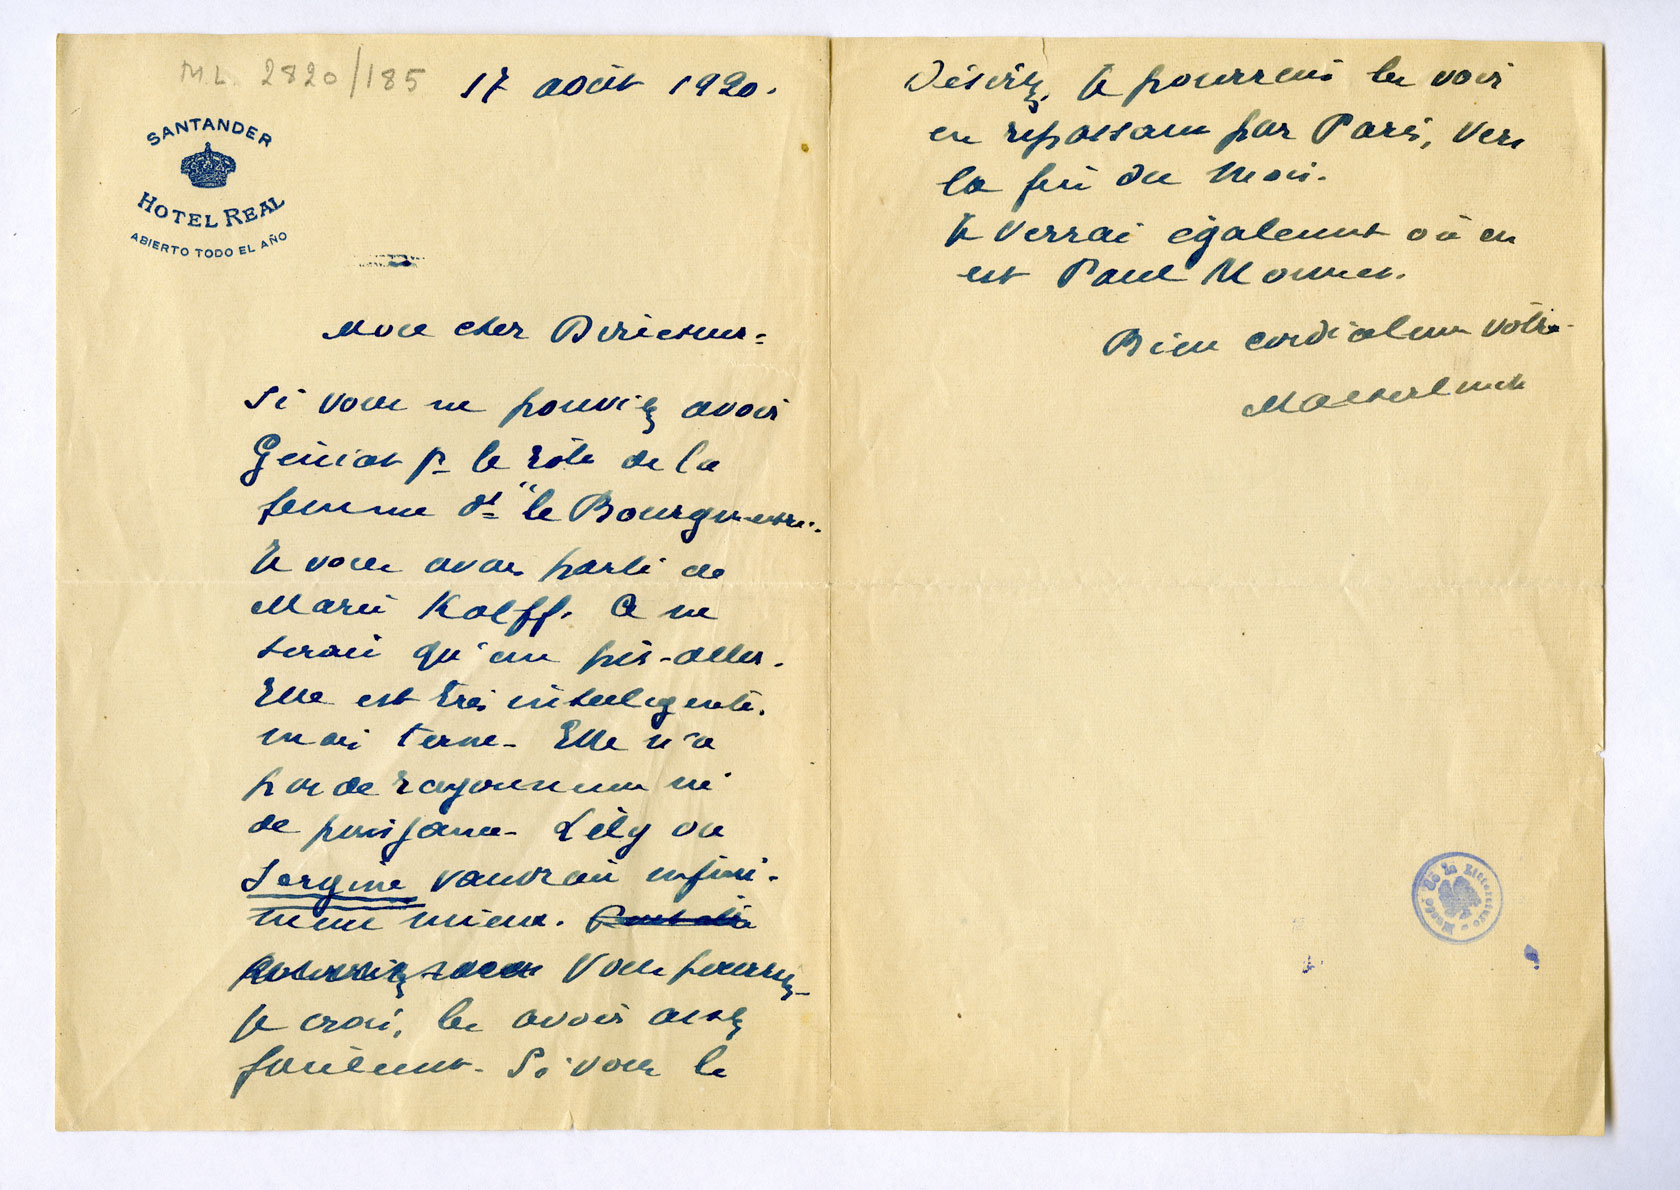 M.L. 2820/185
17 août 1920.
SANTANDER
HOTEL REAL
ABIERTO TODO EL AÑO
Mon cher Directeur-
Si vous ne pouviez avoir
Géniat pr le rôle de la
femme ds "le Bourgmestre.
Je vous avais parlé de
Marie Kolff. Ce ne
serait qu'un pis-aller.
Elle est très intelligente,
mais terne- Elle n'a
pas de rayonnement ni
de puissance- Lély ou
Sergine vaudrait infini-
ment mieux.
Vous pourriez-
je crois, les avoir assez
facilement- Si vous le
désirez, je pourrais les voir
en repassant par Paris, vers
la fin du mois.
Je verrai également où en
est Paul Mounet.
Bien cordialement vôtre-
Maeterlinck
Musée de la Littérature